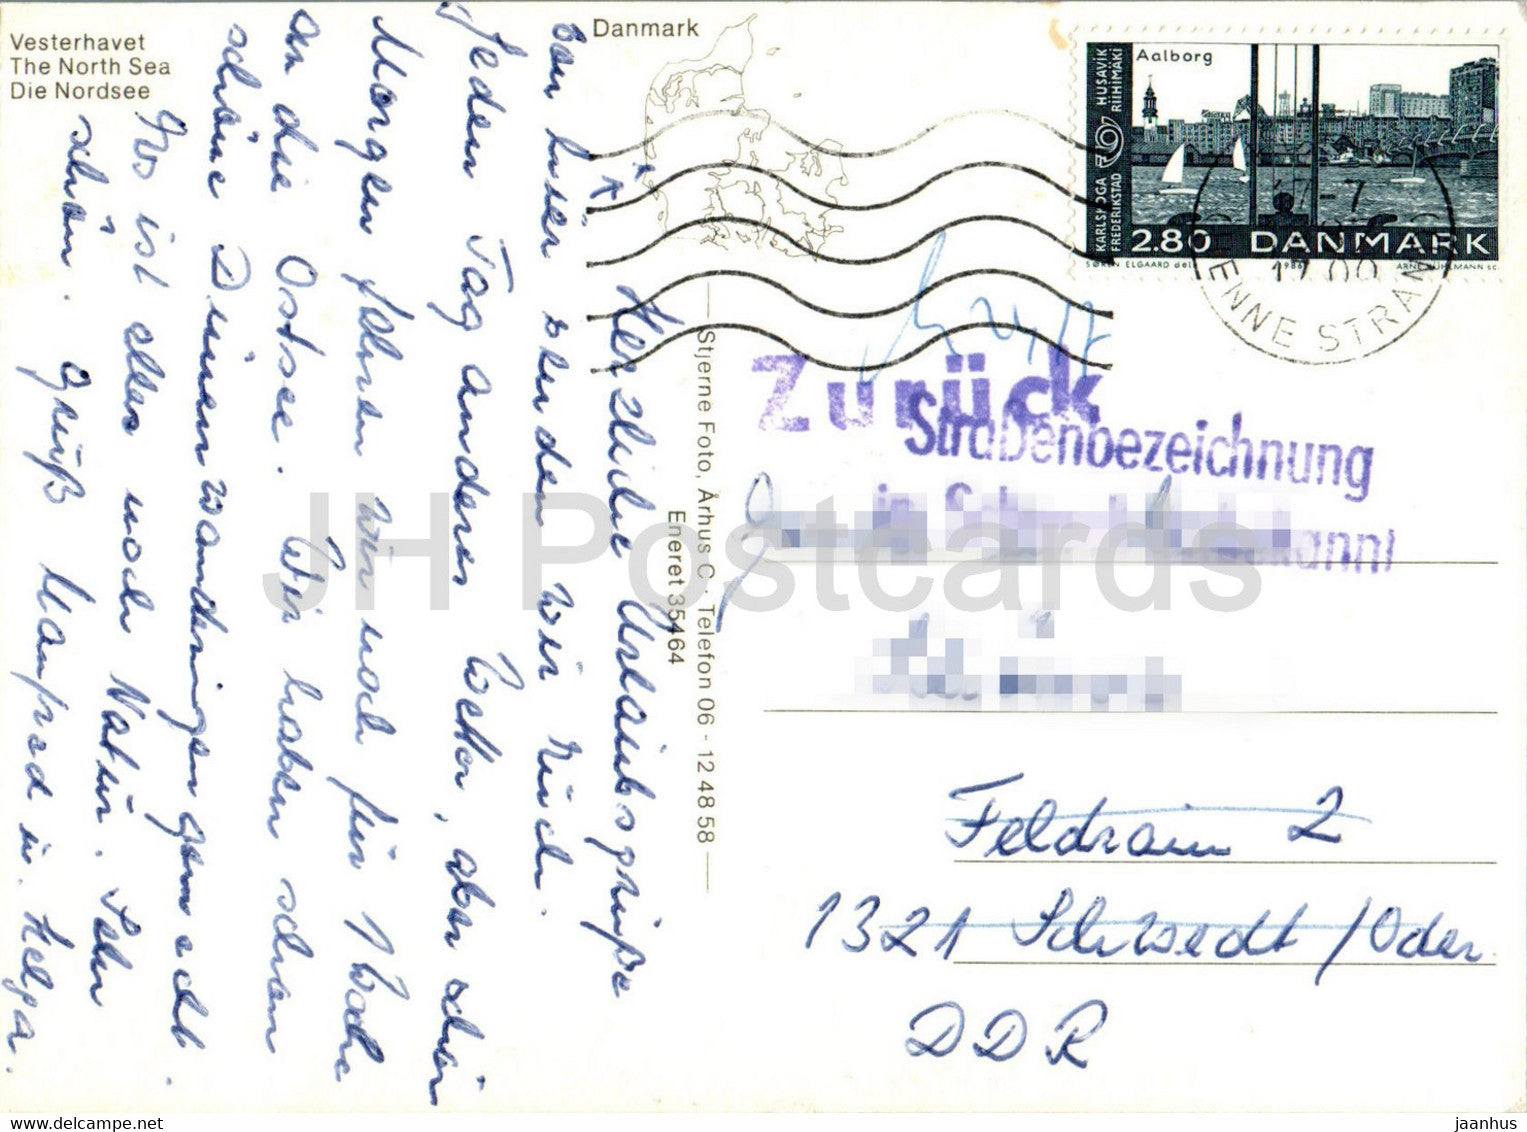 Vesterhavet
The North Sea
Die Nordsee
Danmark
Herzliche Urlaubsgrüße
von hier senden wir Euch.
Jeden Tag anderes Wetter, aber schön
Morgen fahren wir noch für 1 Woche
an die Ostsee. Wir haben schon
schöne Dünenwanderungen gemacht.
Es ist alles noch Natur. Sehr
schön. Gruß Manfred u. Helga.
Stjerne Foto, Århus C. · Telefon 06 - 12 48 58
Eneret 35464
Aalborg
HUSAVIK
RIIHIMÄKI
KARLSKOGA
FREDERIKSTAD
2.80 DANMARK
SØREN ELGAARD del. 1986 ARNE KÜHLMANN sc.
17.00
ENNE STRAN
Zurück
Straßenbezeichnung
in
Feldrain 2
1321 Schwedt/Oder
DDR
JH Postcards
www.delcampe.net
jaanhus